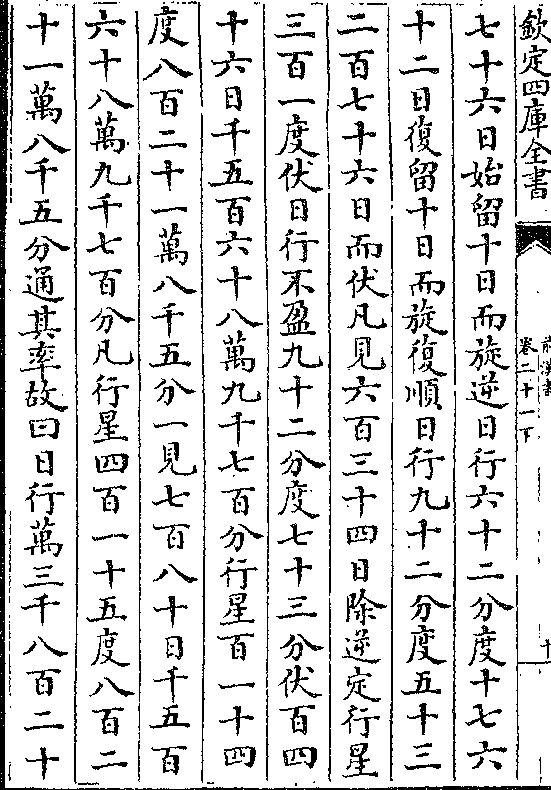 欽定四庫全書
前漢書
卷二十一下
七十六日始留十日而旋逆日行六十二分度十七六
十二日復留十日而旋復順日行九十二分度五十三
二百七十六日而伏凡見六百三十四日除逆定行星
三百一度伏日行不盈九十二分度七十三分伏百四
十六日千五百六十八萬九千七百分行星百一十四
度八百二十一萬八千五分一見七百八十日千五百
六十八萬九千七百分凡行星四百一十五度八百二
十一萬八千五分通其率故曰日行萬三千八百二十